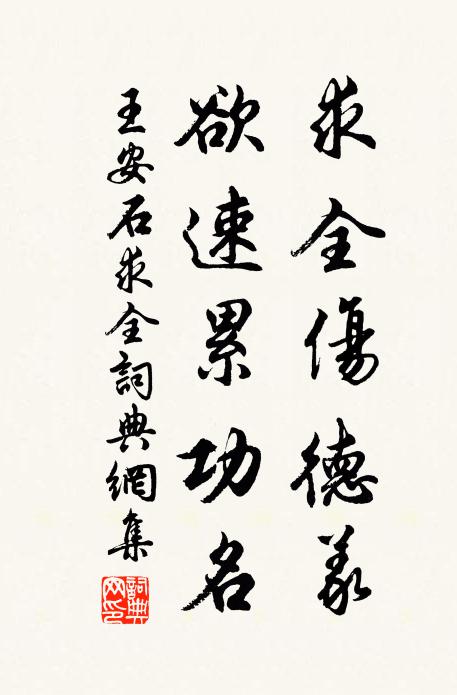 求全傷德義
欲速累功名
王安石求全詞典網集
詞典網印